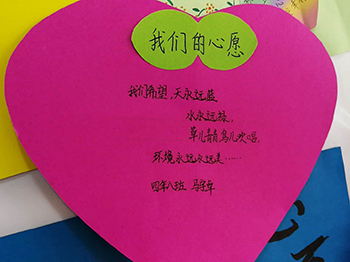 我们的心愿
我们希望,天永远蓝
水永远绿,
草儿青青鸟儿欢唱,
环境永远永远美……
四年八班